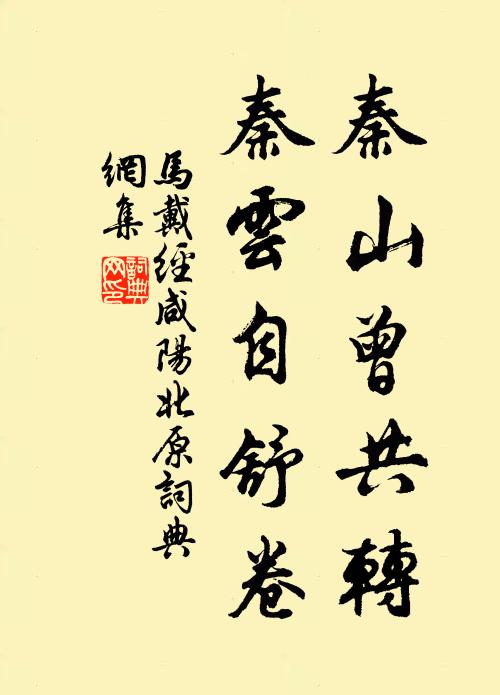 秦山曾共轉
秦雲自舒卷
馬戴經咸陽北原詞典
網集
詞典
网印